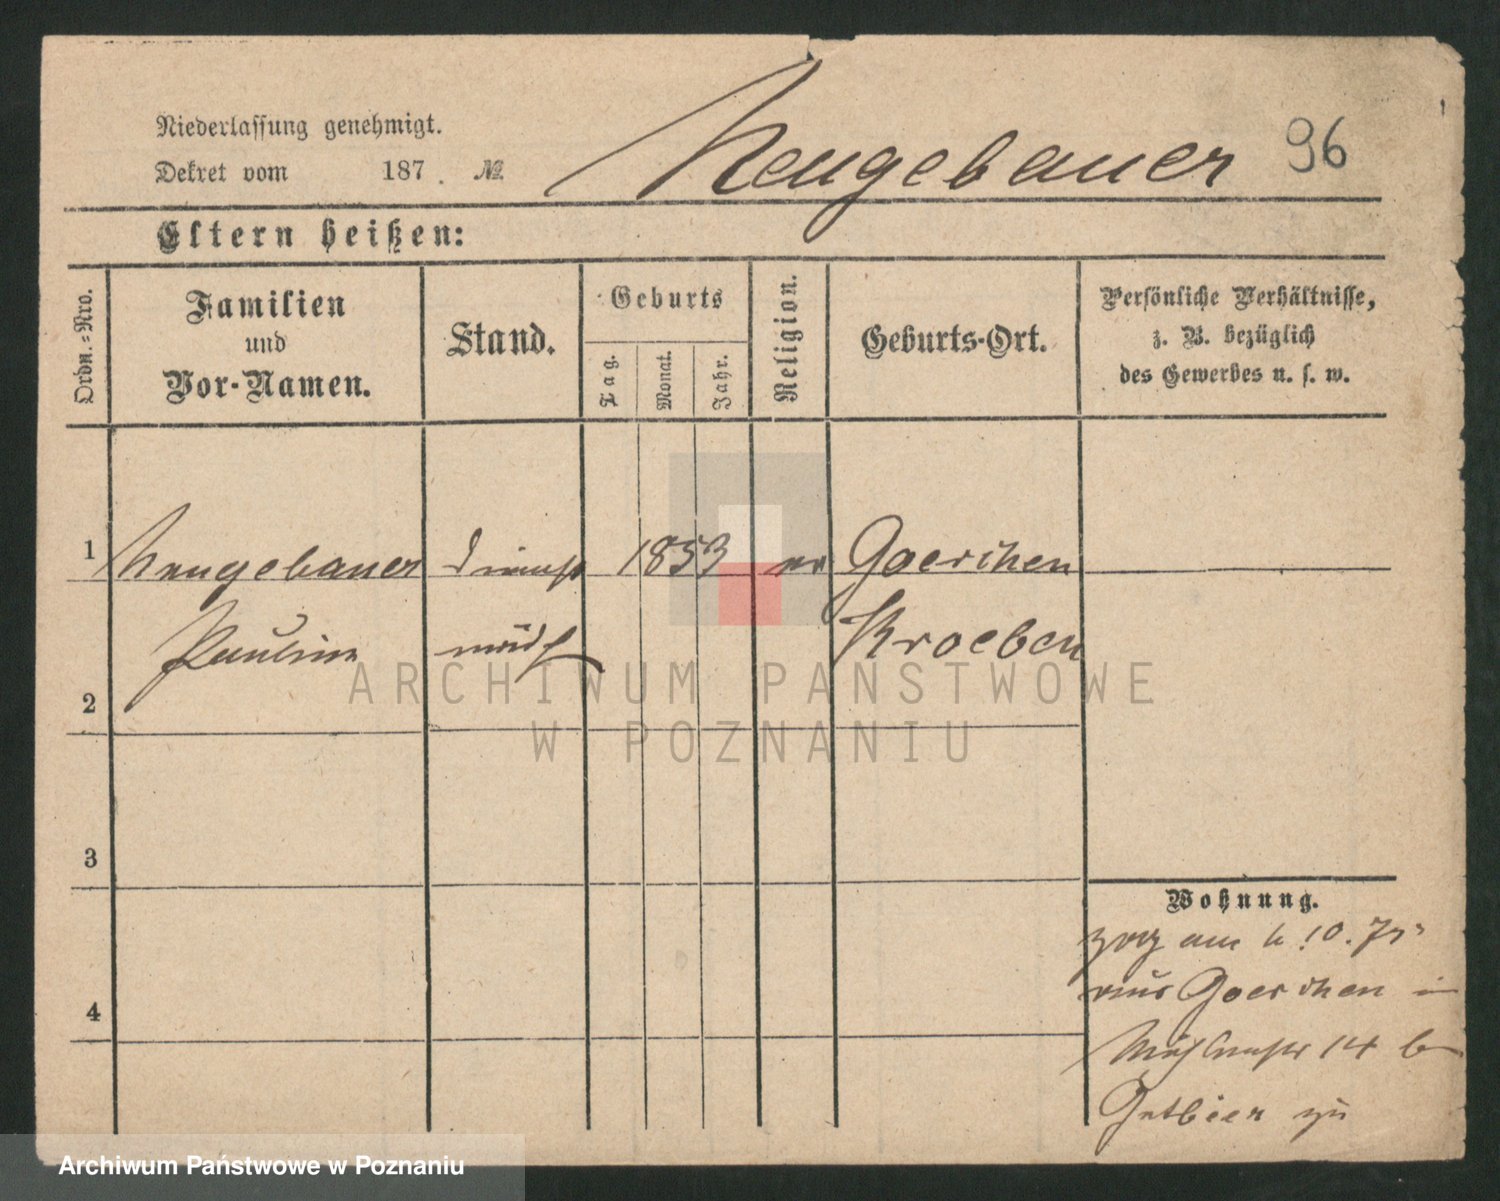 Niederlassung genehmigt.
Dekret vom 187 . №
Neugebauer 96
Eltern heißen:
Ordn.-Nro.
Familien
und
Vor-Namen.
Stand.
Geburts
Tag.
Monat.
Jahr.
Religion.
Geburts-Ort.
Persönliche Verhältnisse,
z. B. bezüglich
des Gewerbes u. s. w.
1 Neugebauer Dienst 1853 Goerchen
Pauline mädch Kroeben
2
ARCHIWUM PAŃSTWOWE
W POZNANIU
3
Wohnung.
zog am 10.
aus Goerchen in
4
14 b
zu
Archiwum Państwowe w Poznaniu